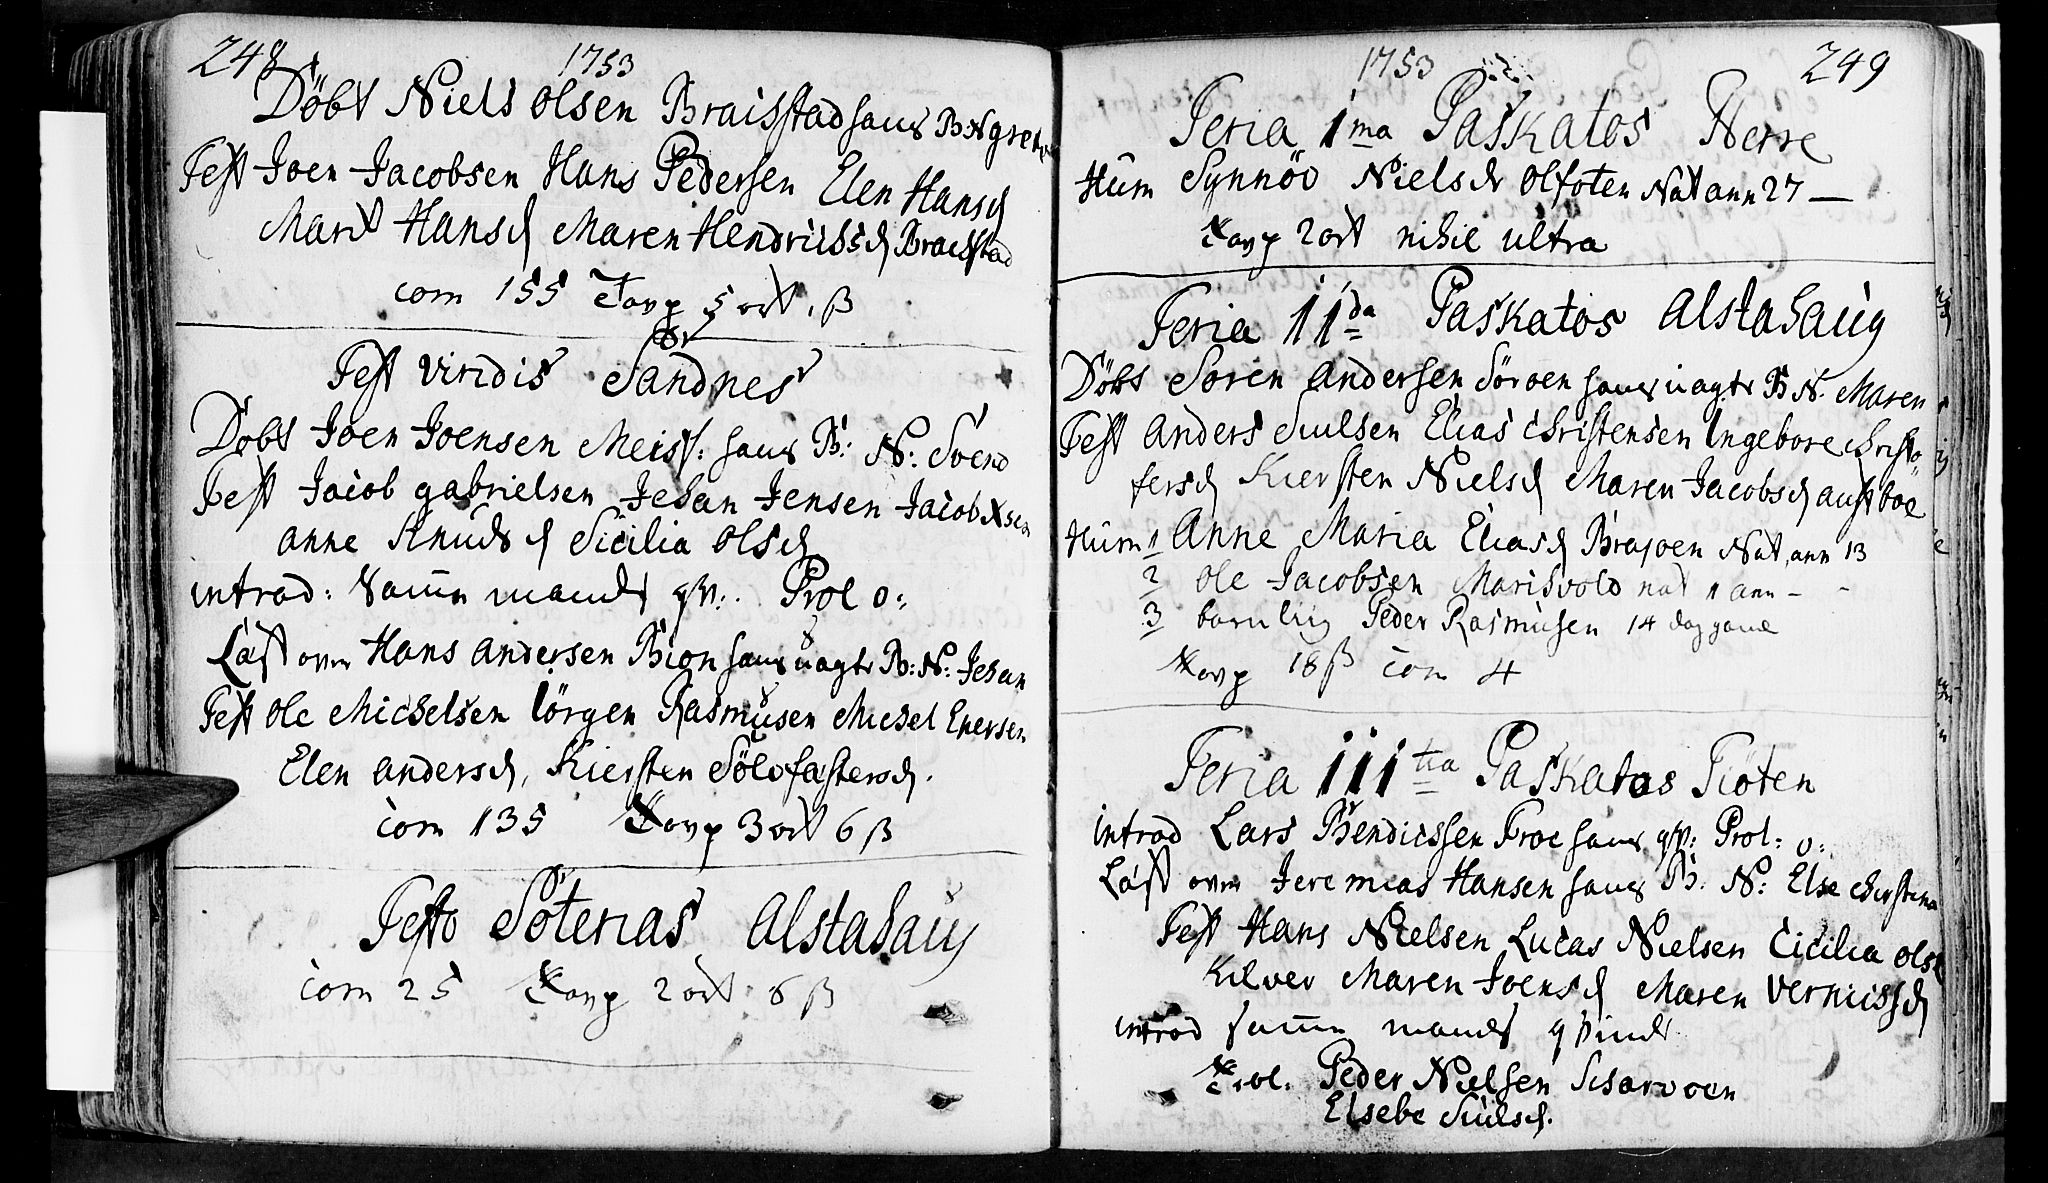 248
1753
Döbt Niels olsen Braisstad hans B: N grete
Test Joen Jacobsen Hans Pedersen Elen Hansd
Marit Hansd Maren Hendricksd Braestad
com 155 Tavp 5 ort 1 β
Fest viridis Sandnes
Döbt Joen Joensen Meisf: hans B: N: Svend
Test Jacob gabrielsen Jehan Jensen Jacob
anne Knudsd Sicilia olsd
introd: samme mands qv: Prol o:
Läst over Hans andersen Biön hans uagte B: N: Jehan
Test ole Michelsen Jörgen Rasmusen Michel Enersen
Elen andersd, Kiersten Sölvfastersd.
com 135 Tavp 3 ort 6 β
Festo Söterias Alstahaug
com 25 Tavp 2 ort 6 β
1753
249
Feria 1ma Paskatos Herre
Hum Synnöv Nielsd olfoten Nat ann 27 —
Tavp 2 ort nihil ultra
Feria 11da Paskatos Alstahaug
Döbt Sören Andersen Söroen hans uagte B N. Maren
Test Anders Siulsen Elias Christensen Ingebore christo
fersd Kiersten Nielsd Maren Jacobsd austboe
Hum 1 Anne Maria Eliasd Brasoen Nat, ann 13
2 ole Jacobsen Marisvold nat 1 ann - -
3 barnlig Peder Rasmusen 14 dag gaml
Tavp 18 β com 4
Feria 111tia Paskatos Tiöten
introd Lars Bendicssen Froe hans qv: Prol: o:
Läst over Jeremias Hansen hans B. N: Else chirstina
Test Hans Nielsen Lucas Nielsen Cicilia olsd
Kilver Maren Joensd Maren Vernicsd
introd samme mands qvinde
Trol. Peder Nielsen Skarvoen
Elsebe Siulsd.